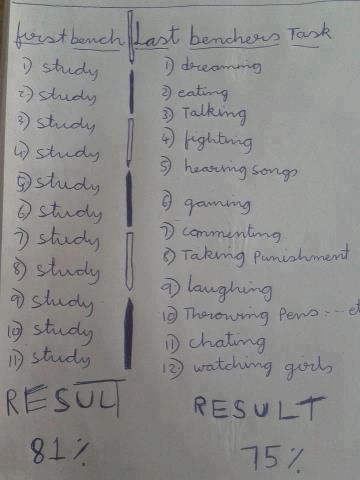 first bench
1) study
2) study
3) study
4) study
5) study
6) study
7) study
8) study
9) study
10) study
11) study
RESULT
81%
Last benchers Task
1) dreaming
2) eating
3) Talking
4) fighting
5) hearing songs
6) gaming
7) commenting
8) Taking Punishment
9) laughing
10) Throwing Pens --- et
11) chating
12) watching girls
RESULT
75%